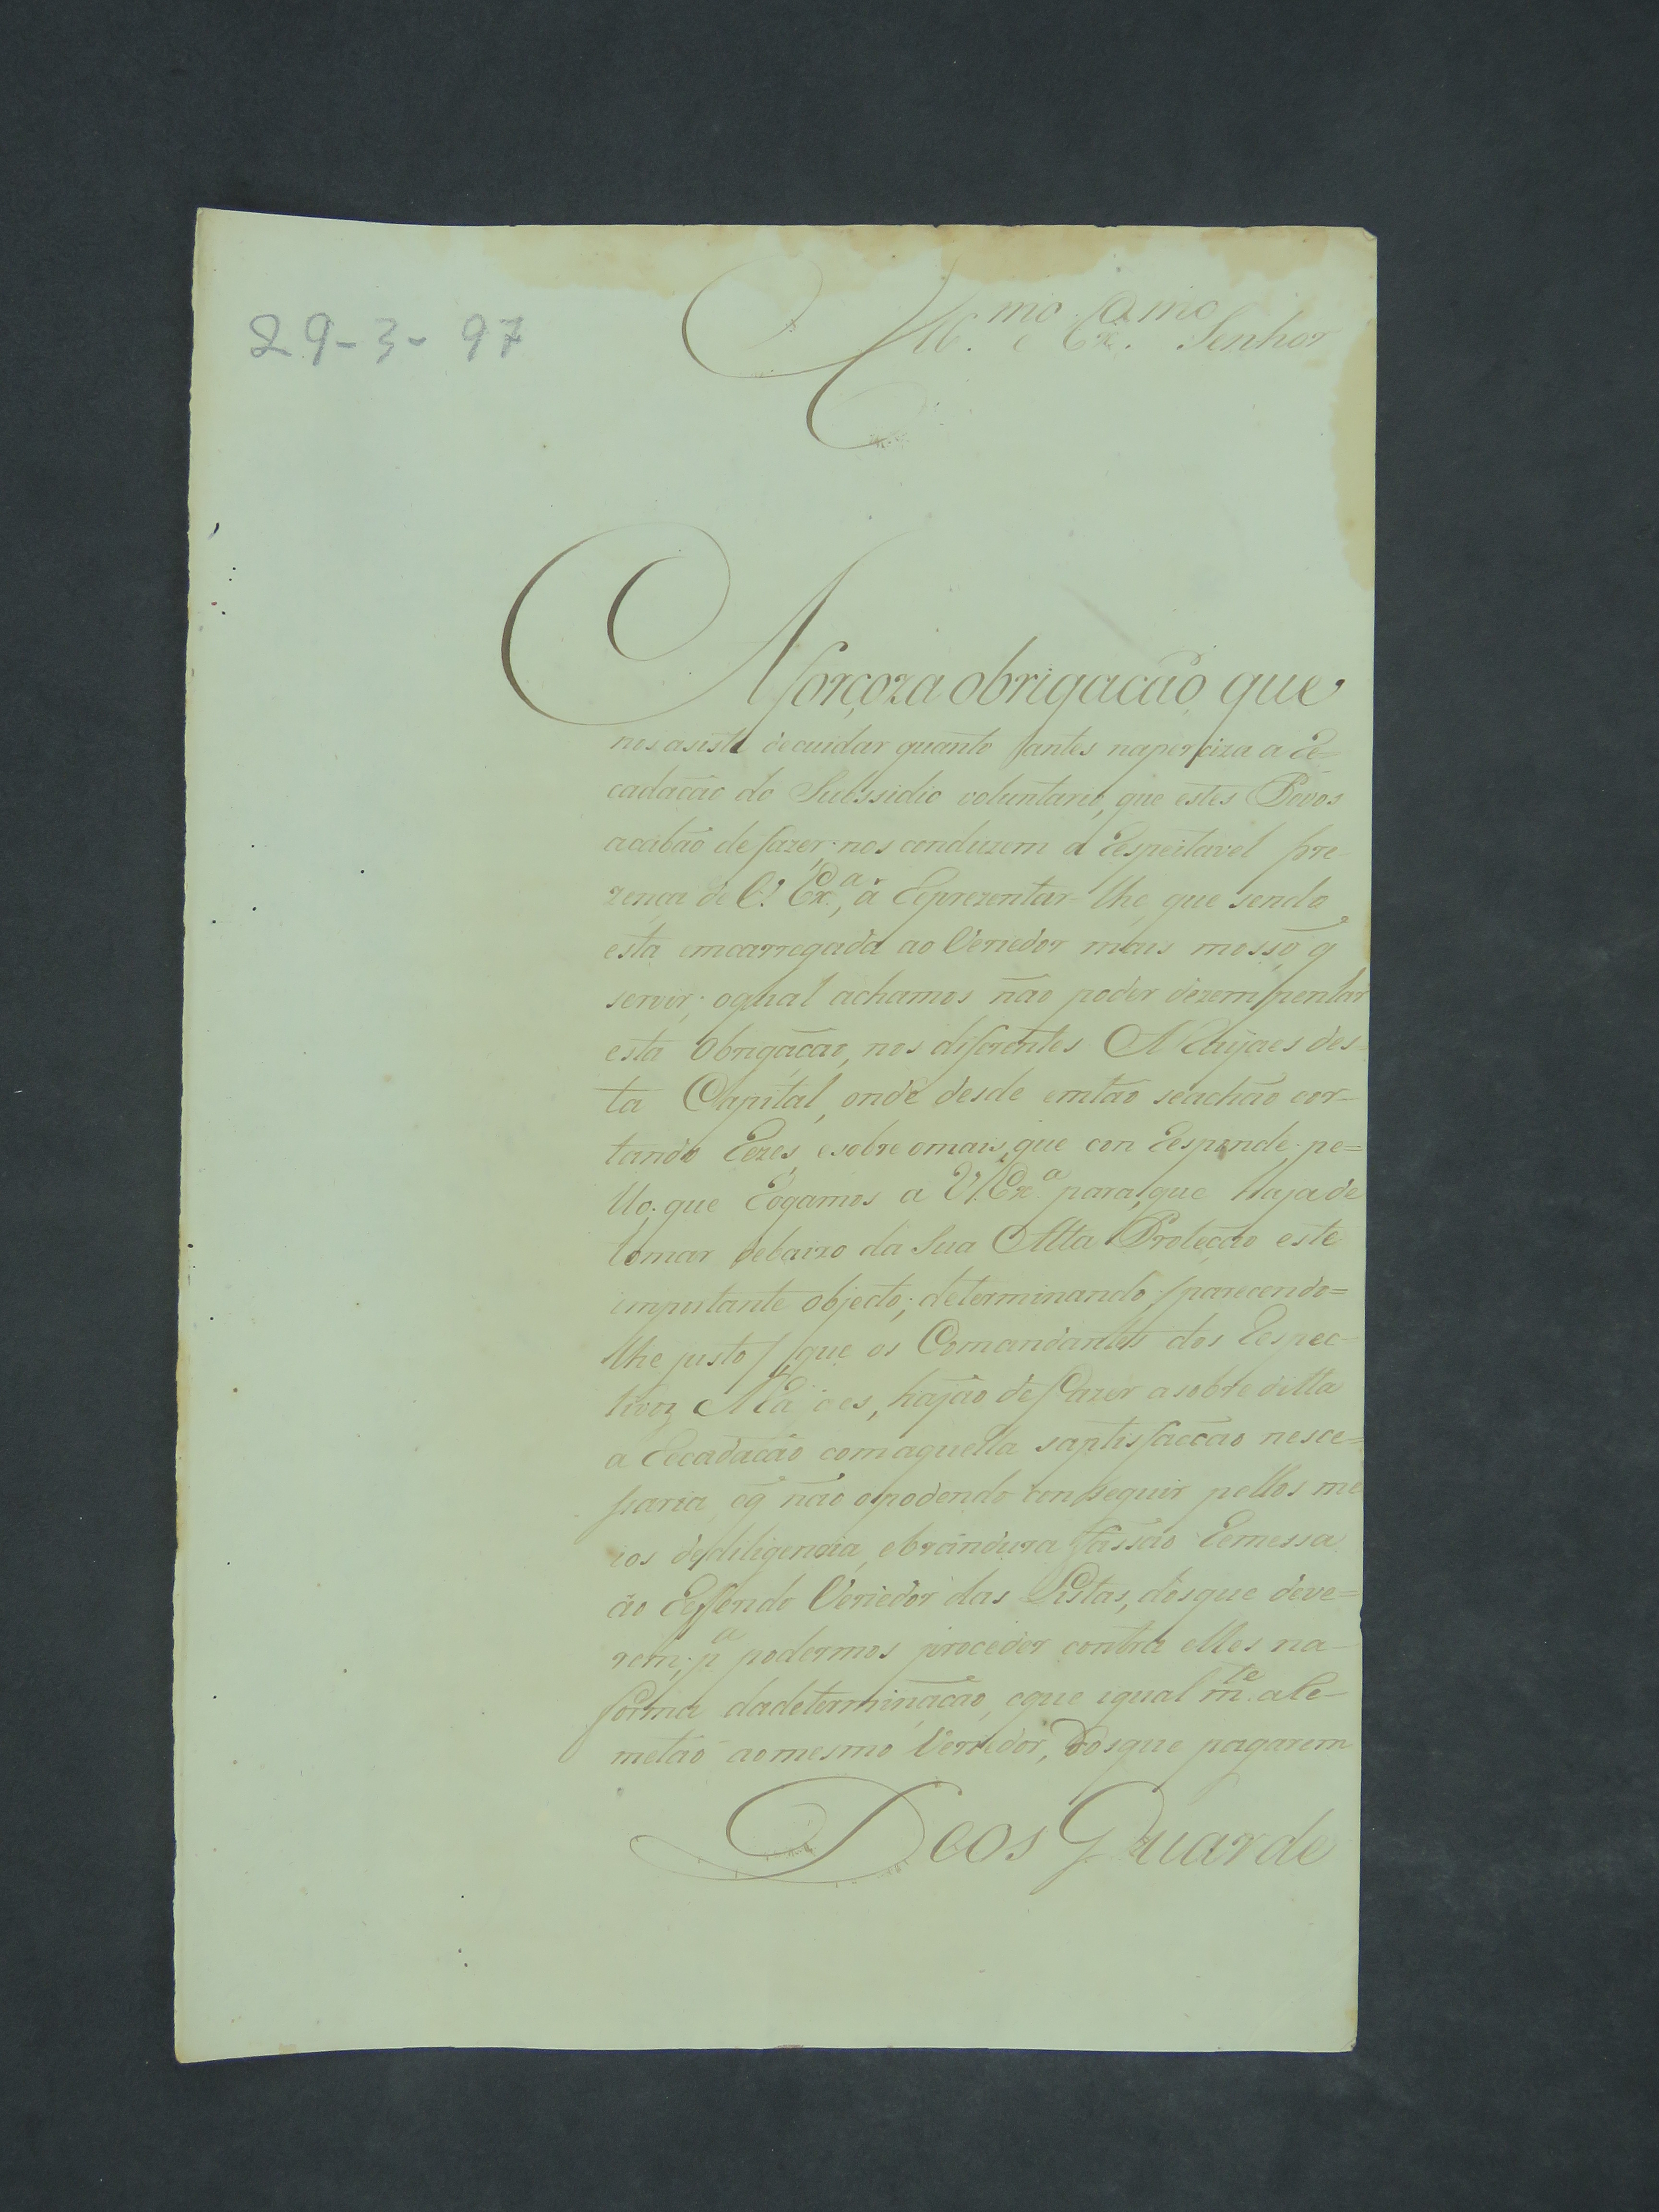 29-3-97
Ill.mo e Ex.mo Senhor
A forçoza obrigacaõ, que
nos asiste de cuidar quanto antes na perciza a Re=
cadacaõ do Subssidio voluntario, que estes Povos
acabaõ de fazer; nos conduzem á Respeitavel pre
zença de V. Ex.a, á Reprezentar-lhe, que sendo
esta emcarregada ao Veriedor mais mosso, q
servir; oqual achamos naõ poder dezempenhar
esta Obrigaçaõ, nos diferentes
ta Capital, onde desde emtaõ seachaõ cor-
tando Rezes, esobre omais, que con Responde; pe=
llo, que Rogamos a V. Ex.a para, que haja de
tomar debaixo da Sua Alta Proteçaõ este
importante objecto; determinando, /parecendo=
lhe justo/, que os Comandantes dos Respec
tivos hajaõ de fazer asobre ditta
a Recadacaõ comaquella saptisfaccaõ nesce=
saria, eq naõ opodendo conseguir pellos me
ios de diligencia, ebrandura, fassaõ Remessa
ao Reffendo Veriedor das Listas, dosque deve=
rem; p.a podermos proceder contra elles na-
forma dadeterminacaõ, eque igual m.te a Re-
metaõ aomesmo Veriedor, dosque pagarem
Deos Guarde